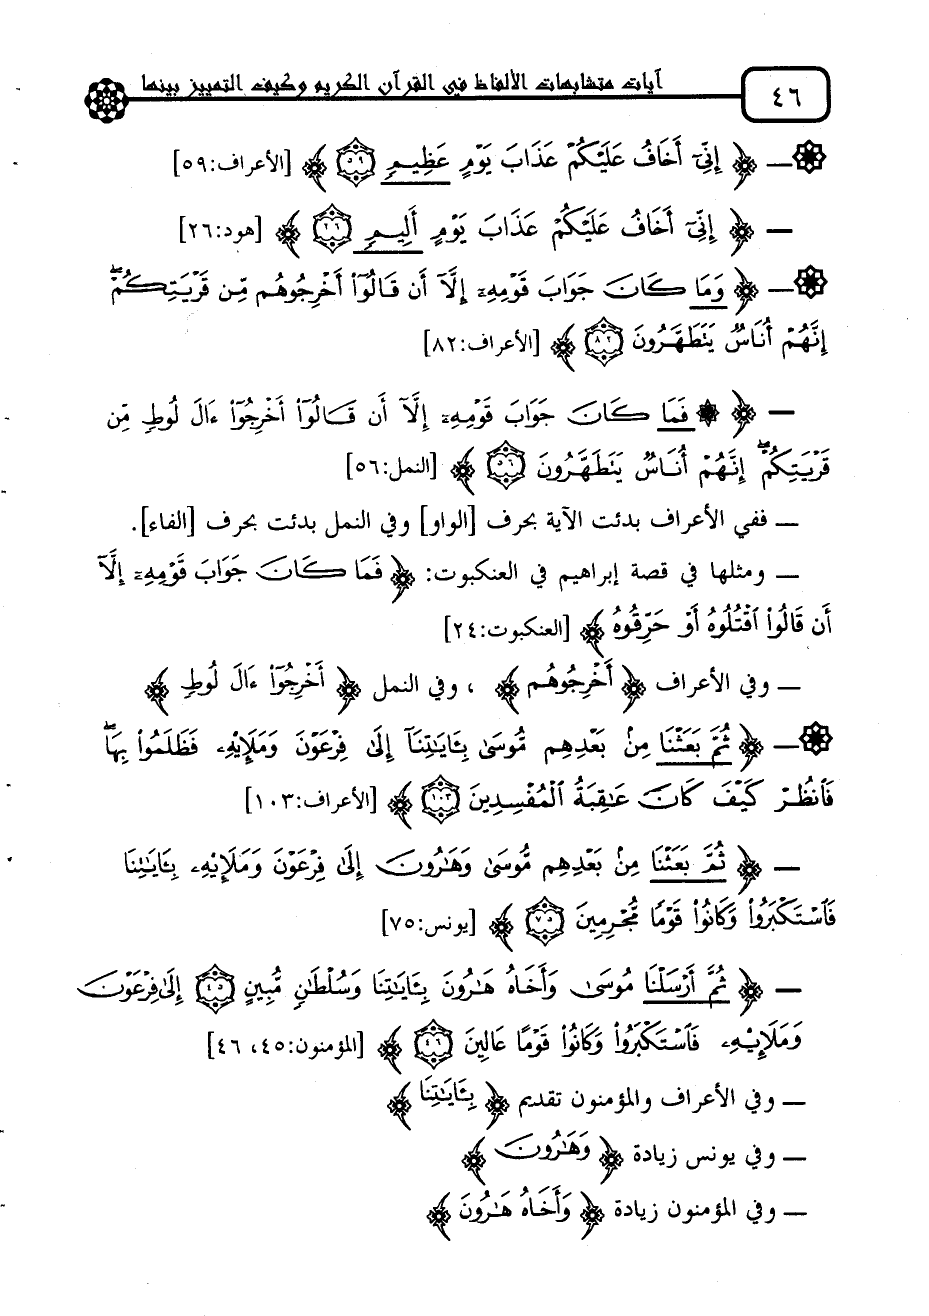 آيات متشابهات الألفاظ في القرآن الكريم وكيف التمييز بينها
٤٦
— ﴿ إِنِّيٓ أَخَافُ عَلَيۡكُمۡ عَذَابَ يَوۡمٍ عَظِيمٖ ٥٩ ﴾ [الأعراف:٥٩]
— ﴿ إِنِّيٓ أَخَافُ عَلَيۡكُمۡ عَذَابَ يَوۡمٍ أَلِيمٖ ٢٦ ﴾ [هود:٢٦]
— ﴿ وَمَا كَانَ جَوَابَ قَوۡمِهِۦٓ إِلَّآ أَن قَالُوٓاْ أَخۡرِجُوهُم مِّن قَرۡيَتِكُمۡۖ
إِنَّهُمۡ أُنَاسٞ يَتَطَهَّرُونَ ٨٢ ﴾ [الأعراف:٨٢]
— ﴿ ۞ فَمَا كَانَ جَوَابَ قَوۡمِهِۦٓ إِلَّآ أَن قَالُوٓاْ أَخۡرِجُوٓاْ ءَالَ لُوطٖ مِّن
قَرۡيَتِكُمۡۖ إِنَّهُمۡ أُنَاسٞ يَتَطَهَّرُونَ ٥٦ ﴾ [النمل:٥٦]
— ففي الأعراف بدئت الآية بحرف [الواو] وفي النمل بدئت بحرف [الفاء].
— ومثلها في قصة إبراهيم في العنكبوت: ﴿ فَمَا كَانَ جَوَابَ قَوۡمِهِۦٓ إِلَّآ
أَن قَالُواْ ٱقۡتُلُوهُ أَوۡ حَرِّقُوهُ ﴾ [العنكبوت:٢٤]
— وفي الأعراف ﴿ أَخۡرِجُوهُم ﴾ ، وفي النمل ﴿ أَخۡرِجُوٓاْ ءَالَ لُوطٖ ﴾
— ﴿ ثُمَّ بَعَثۡنَا مِنۢ بَعۡدِهِم مُّوسَىٰ بِـَٔايَٰتِنَآ إِلَىٰ فِرۡعَوۡنَ وَمَلَإِيْهِۦ فَظَلَمُواْ بِهَاۖ
فَٱنظُرۡ كَيۡفَ كَانَ عَٰقِبَةُ ٱلۡمُفۡسِدِينَ ١٠٣ ﴾ [الأعراف:١٠٣]
— ﴿ ثُمَّ بَعَثۡنَا مِنۢ بَعۡدِهِم مُّوسَىٰ وَهَٰرُونَ إِلَىٰ فِرۡعَوۡنَ وَمَلَإِيْهِۦ بِـَٔايَٰتِنَا
فَٱسۡتَكۡبَرُواْ وَكَانُواْ قَوۡمٗا مُّجۡرِمِينَ ٧٥ ﴾ [يونس:٧٥]
— ﴿ ثُمَّ أَرۡسَلۡنَا مُوسَىٰ وَأَخَاهُ هَٰرُونَ بِـَٔايَٰتِنَا وَسُلۡطَٰنٖ مُّبِينٍ ٤٥ إِلَىٰ فِرۡعَوۡنَ
وَمَلَإِيْهِۦ فَٱسۡتَكۡبَرُواْ وَكَانُواْ قَوۡمًا عَالِينَ ٤٦ ﴾ [المؤمنون:٤٥، ٤٦]
— وفي الأعراف والمؤمنون تقديم ﴿ بِـَٔايَٰتِنَا ﴾
— وفي يونس زيادة ﴿ وَهَٰرُونَ ﴾
— وفي المؤمنون زيادة ﴿ وَأَخَاهُ هَٰرُونَ ﴾